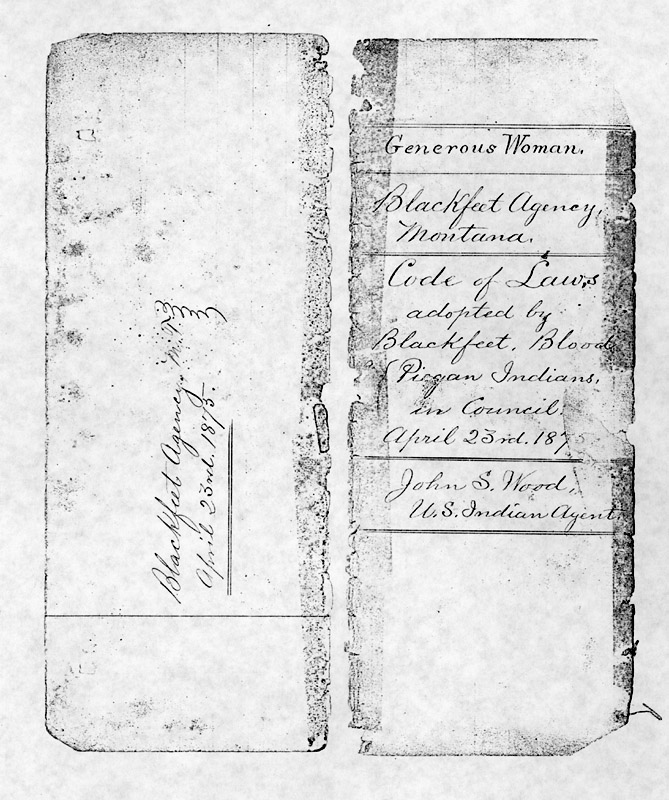 Blackfeet Agency, M.T.
April 23rd. 1875.
Generous Woman.
Blackfeet Agency,
Montana.
Code of Laws
adopted by
Blackfeet, Blood
& Piegan Indians,
in Council.
April 23rd. 187
John S. Wood,
U.S. Indian Agent